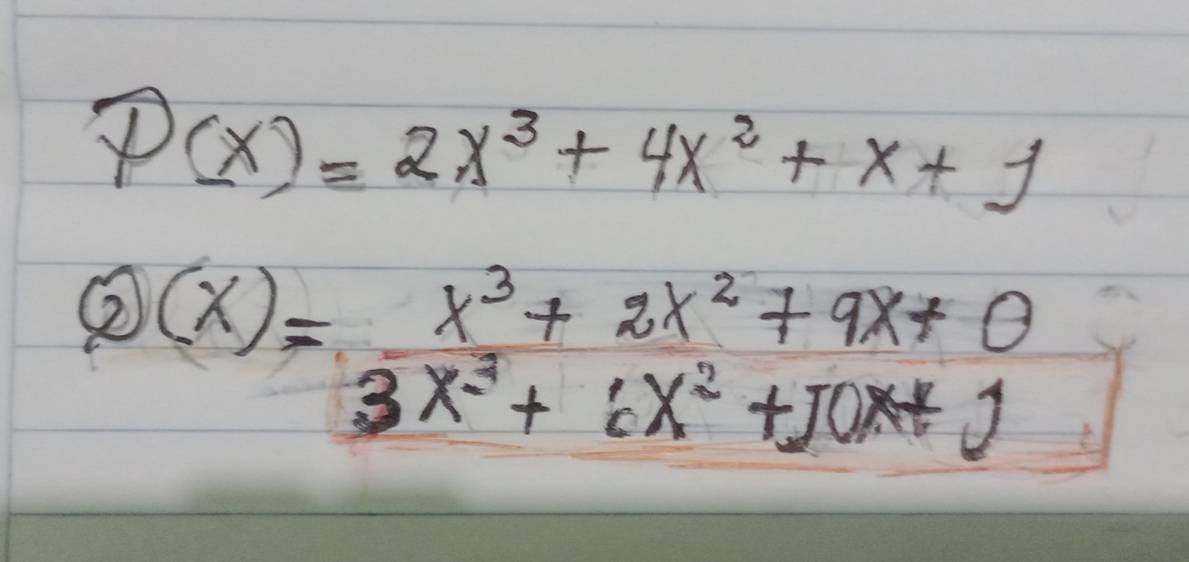 P(x) = 2x³ + 4x² + x + 1
Q(x) = x³ + 2x² + 9x + 0
3x³ + 6x² + 10x + 1